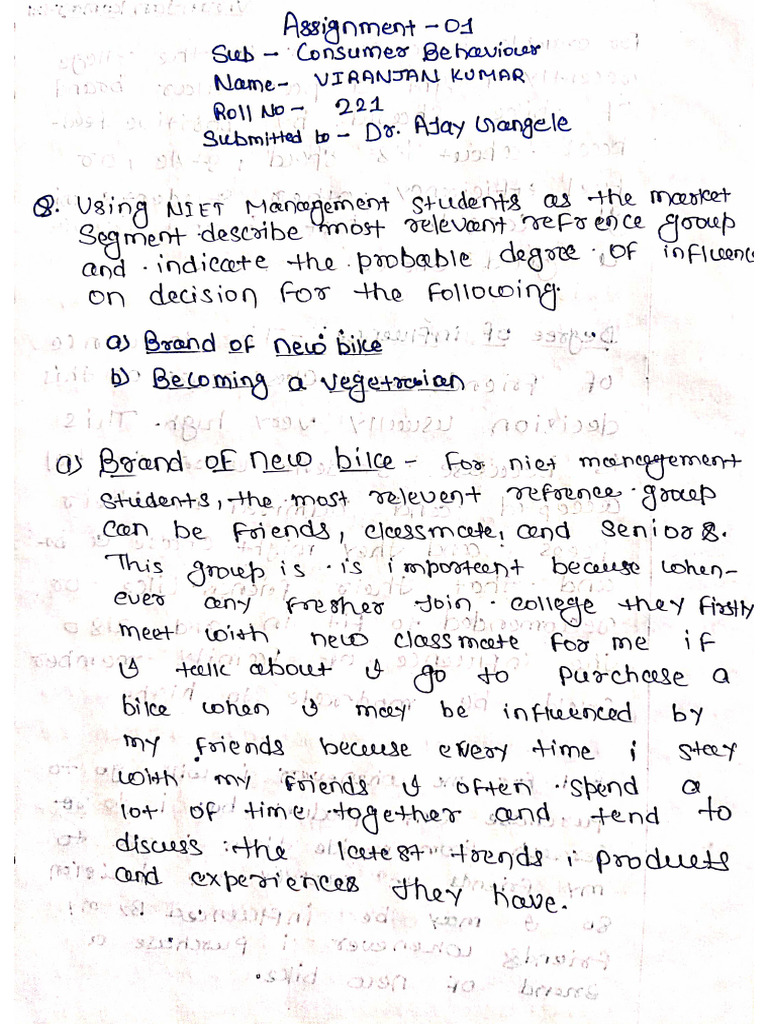 Assignment - 01
Sub - Consumer Behaviour
Name - VIRANJAN KUMAR
Roll No - 221
Submitted to - Dr. Ajay Gangele
Q. Using NIET Management Students as the market
Segment describe most relevant refrence group
and indicate the probable degree of influenc
on decision for the following.
a) Brand of new bike
b) Becoming a vegetarian
a) Brand of new bike - for niet management
students, the most relevent refrence group
can be friends, classmate, and seniors.
This group is is important because when-
ever any fresher join college they firstly
meet with new classmate for me if
I talk about I go to purchase a
bike when I may be influenced by
my friends because every time i stay
with my friends I often spend a
lot of time together and tend to
discuss the latest trends, products
and experiences they have.